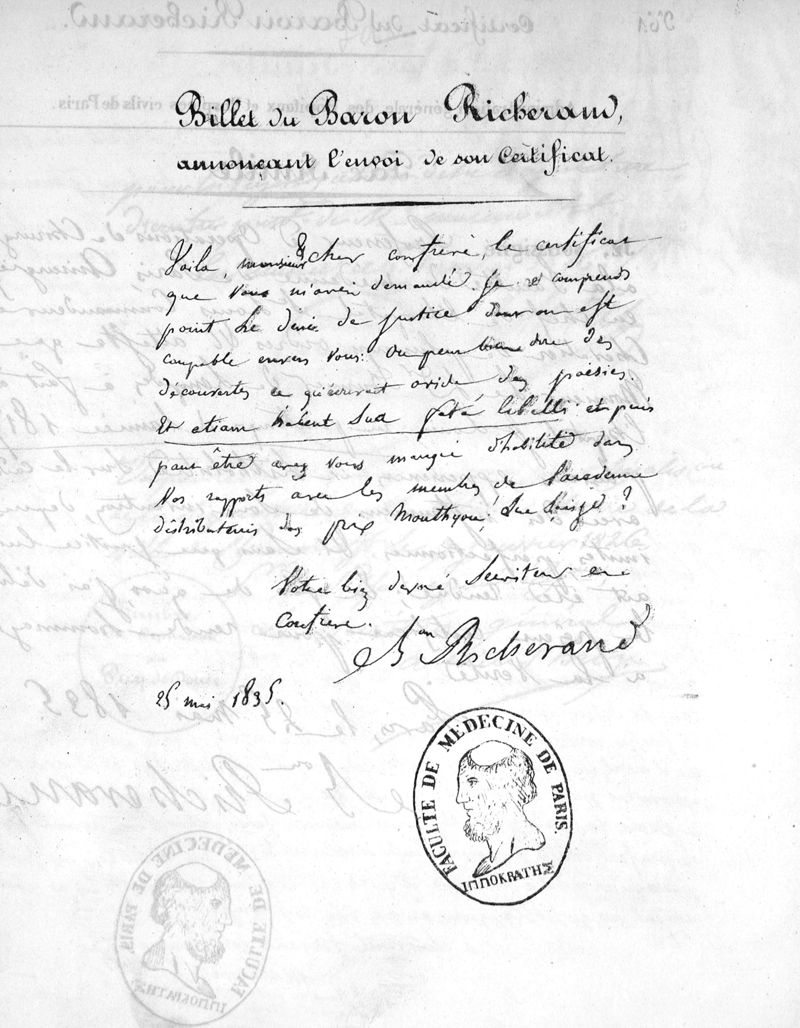 Billet du Baron Richerand,
annonçant l'envoi de son Certificat.
Voila, monsieur & cher confrère, le certificat
que vous m'avez demandé. Je ne comprends
point le déni de justice dont on est
coupable envers vous: on peut bien dire des
découvertes ce qu'écrivait ovide des poësies.
Et etiam habent sua fata libelli: et puis
peut être avez vous manqué d'habilité dans
vos rapports avec les membres de l'academie
distributeurs des prix Monthyon; que sais-je?
Votre bien dévoué Serviteur et
Confrère.
Bon Richerand
25 mai 1835.
FACULTE DE MEDECINE DE PARIS.
ΙΠΠΟΚΡΑΤΗΣ